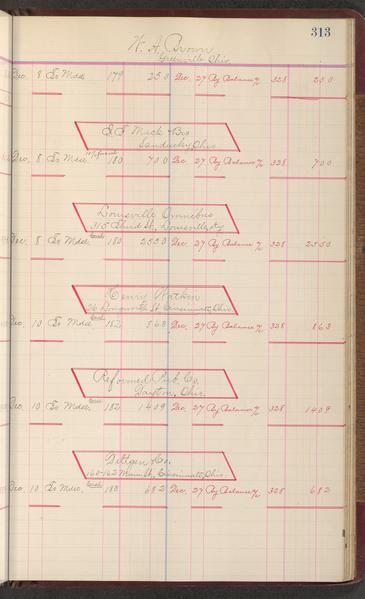 313
W. A. Brown
Greenville Ohio
Dec. 8 To Mdse 179 250 Dec. 27 By Balance 328 250
Bro
Sandusky Ohio
Dec. 8 To Mdse 180 700 Dec. 27 By Balance 328 700
Louisville Omnibus
315 Third St, Louisville, Ky
Dec. 8 To Mdse, 180 2550 Dec. 27 By Balance 328 2550
Henry
St Cincinnati, Ohio
Dec. 10 To Mdse 182 863 Dec. 27 By Balance 328 863
Reformed Pub. Co.
Dayton, Ohio.
Dec. 10 To Mdse, 182 1409 Dec. 27 By Balance 328 1409
Dittgen & Co.
160-162 Main St, Cincinnati, Ohio.
Dec. 10 To Mdse, 183 682 Dec. 27 By Balance 328 682